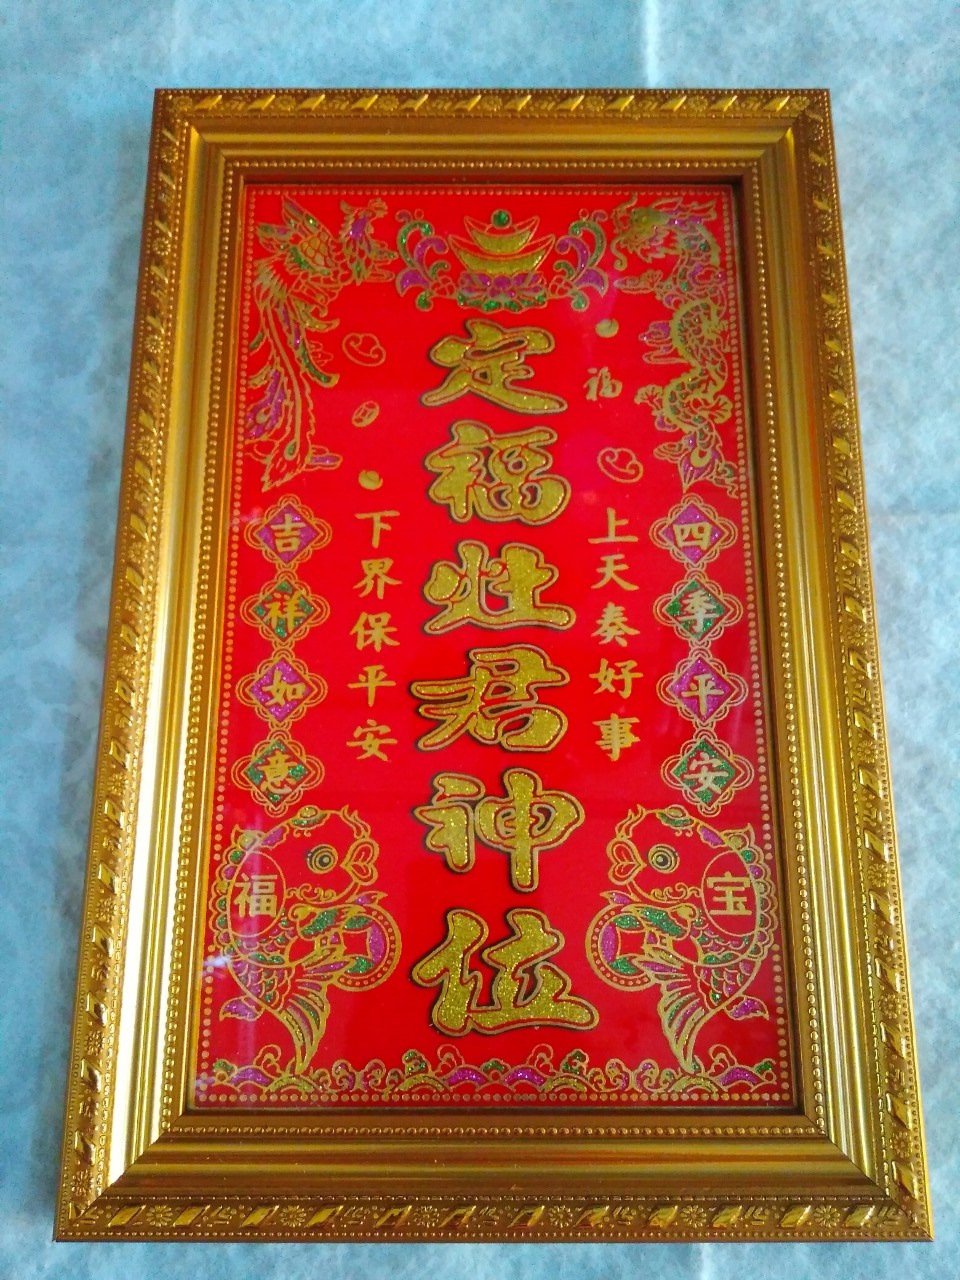 定福灶君神位
上天奏好事
下界保平安
四季平安
吉祥如意
福
福
宝